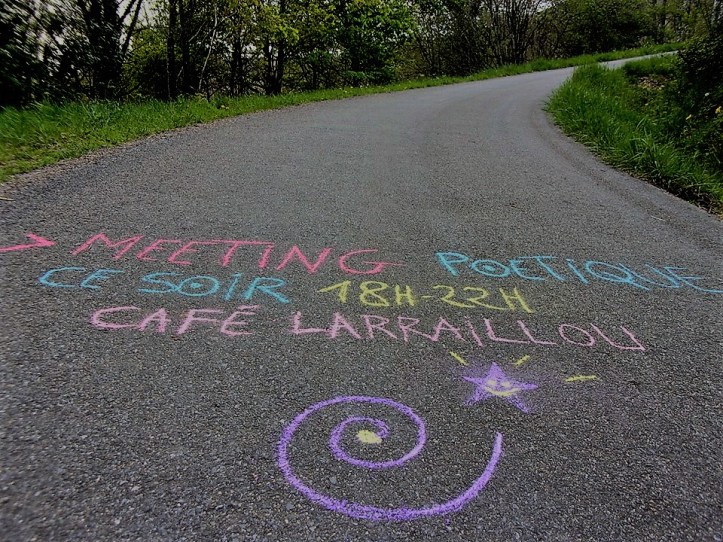 > MEETING POETIQUE
CE SOIR 18H-22H
CAFÉ LARRAILLOU